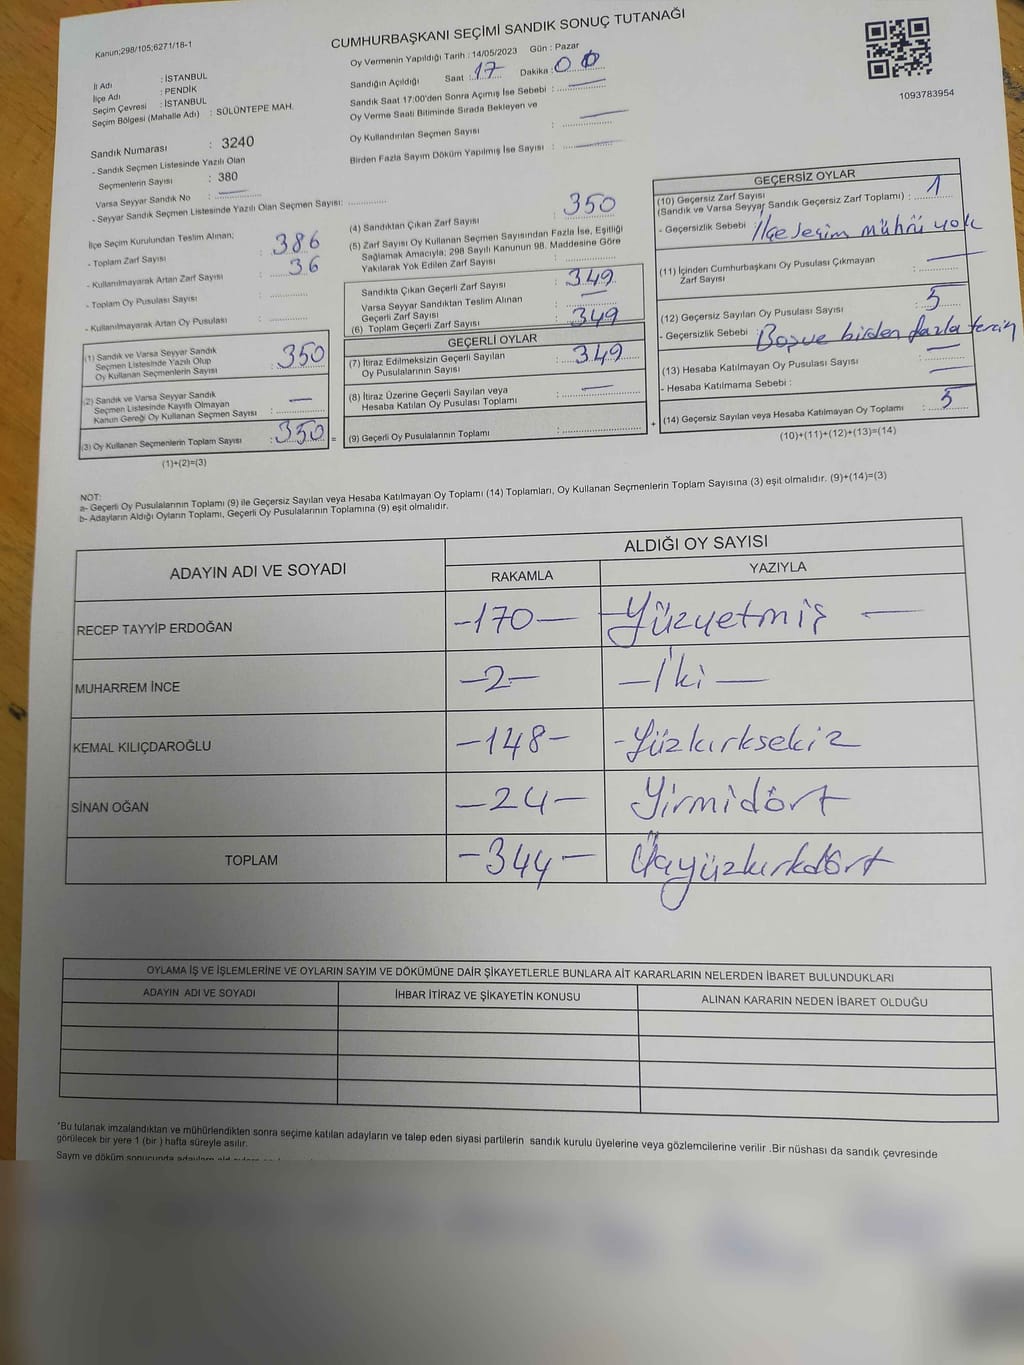 Kanun;298/105;6271/18-1
CUMHURBAŞKANI SEÇİMİ SANDIK SONUÇ TUTANAĞI
1093783954
İl Adı : İSTANBUL
İlçe Adı : PENDİK
Seçim Çevresi : İSTANBUL
Seçim Bölgesi (Mahalle Adı) : SÜLÜNTEPE MAH.
Sandık Numarası : 3240
- Sandık Seçmen Listesinde Yazılı Olan
Seçmenlerin Sayısı : 380
Varsa Seyyar Sandık No :
- Seyyar Sandık Seçmen Listesinde Yazılı Olan Seçmen Sayısı:
Oy Vermenin Yapıldığı Tarih : 14/05/2023 Gün : Pazar
Sandığın Açıldığı Saat : 17 Dakika : 00
Sandık Saat 17:00'den Sonra Açımış İse Sebebi : —
Oy Verme Saati Bitiminde Sırada Bekleyen ve
Oy Kullandırılan Seçmen Sayısı : —
Birden Fazla Sayım Döküm Yapılmış İse Sayısı : —
İlçe Seçim Kurulundan Teslim Alınan;
- Toplam Zarf Sayısı : 386
- Kullanılmayarak Artan Zarf Sayısı : 36
- Toplam Oy Pusulası Sayısı :
- Kullanılmayarak Artan Oy Pusulası :
(1) Sandık ve Varsa Seyyar Sandık
Seçmen Listesinde Yazılı Olup
Oy Kullanan Seçmenlerin Sayısı : 350
(2) Sandık ve Varsa Seyyar Sandık
Seçmen Listesinde Kayıtlı Olmayan
Kanun Gereği Oy Kullanan Seçmen Sayısı : —
(3) Oy Kullanan Seçmenlerin Toplam Sayısı : 350 =
(1)+(2)=(3)
(4) Sandıktan Çıkan Zarf Sayısı : 350
(5) Zarf Sayısı Oy Kullanan Seçmen Sayısından Fazla İse, Eşitliği
Sağlamak Amacıyla; 298 Sayılı Kanunun 98. Maddesine Göre
Yakılarak Yok Edilen Zarf Sayısı :
Sandıkta Çıkan Geçerli Zarf Sayısı : 349
Varsa Seyyar Sandıktan Teslim Alınan
Geçerli Zarf Sayısı : —
(6) Toplam Geçerli Zarf Sayısı : 349
GEÇERLİ OYLAR
(7) İtiraz Edilmeksizin Geçerli Sayılan
Oy Pusulalarının Sayısı : 349
(8) İtiraz Üzerine Geçerli Sayılan veya
Hesaba Katılan Oy Pusulası Toplamı : —
(9) Geçerli Oy Pusulalarının Toplamı : +
GEÇERSİZ OYLAR
(10) Geçersiz Zarf Sayısı
(Sandık ve Varsa Seyyar Sandık Geçersiz Zarf Toplamı) : 1
- Geçersizlik Sebebi : İlçe seçim mührü yok
(11) İçinden Cumhurbaşkanı Oy Pusulası Çıkmayan
Zarf Sayısı : —
(12) Geçersiz Sayılan Oy Pusulası Sayısı : 5
- Geçersizlik Sebebi : Boş ve birden fazla tercin
(13) Hesaba Katılmayan Oy Pusulası Sayısı : —
- Hesaba Katılmama Sebebi : —
(14) Geçersiz Sayılan veya Hesaba Katılmayan Oy Toplamı : 5
(10)+(11)+(12)+(13)=(14)
NOT:
a- Geçerli Oy Pusulalarının Toplamı (9) ile Geçersiz Sayılan veya Hesaba Katılmayan Oy Toplamı (14) Toplamları, Oy Kullanan Seçmenlerin Toplam Sayısına (3) eşit olmalıdır. (9)+(14)=(3)
b- Adayların Aldığı Oyların Toplamı, Geçerli Oy Pusulalarının Toplamına (9) eşit olmalıdır.
ADAYIN ADI VE SOYADI ALDIĞI OY SAYISI
RAKAMLA YAZIYLA
RECEP TAYYİP ERDOĞAN -170- Yüzyetmiş —
MUHARREM İNCE -2- -İki-
KEMAL KILIÇDAROĞLU -148- -Yüzkırksekiz
SİNAN OĞAN -24- Yirmidört
TOPLAM -344- Üçyüzkırkdört
OYLAMA İŞ VE İŞLEMLERİNE VE OYLARIN SAYIM VE DÖKÜMÜNE DAİR ŞİKAYETLERLE BUNLARA AİT KARARLARIN NELERDEN İBARET BULUNDUKLARI
ADAYIN ADI VE SOYADI İHBAR İTİRAZ VE ŞİKAYETİN KONUSU ALINAN KARARIN NEDEN İBARET OLDUĞU
*Bu tutanak imzalandıktan ve mühürlendikten sonra seçime katılan adayların ve talep eden siyasi partilerin sandık kurulu üyelerine veya gözlemcilerine verilir .Bir nüshası da sandık çevresinde
görülecek bir yere 1 (bir ) hafta süreyle asılır.
Sayım ve döküm sonucunda adayların